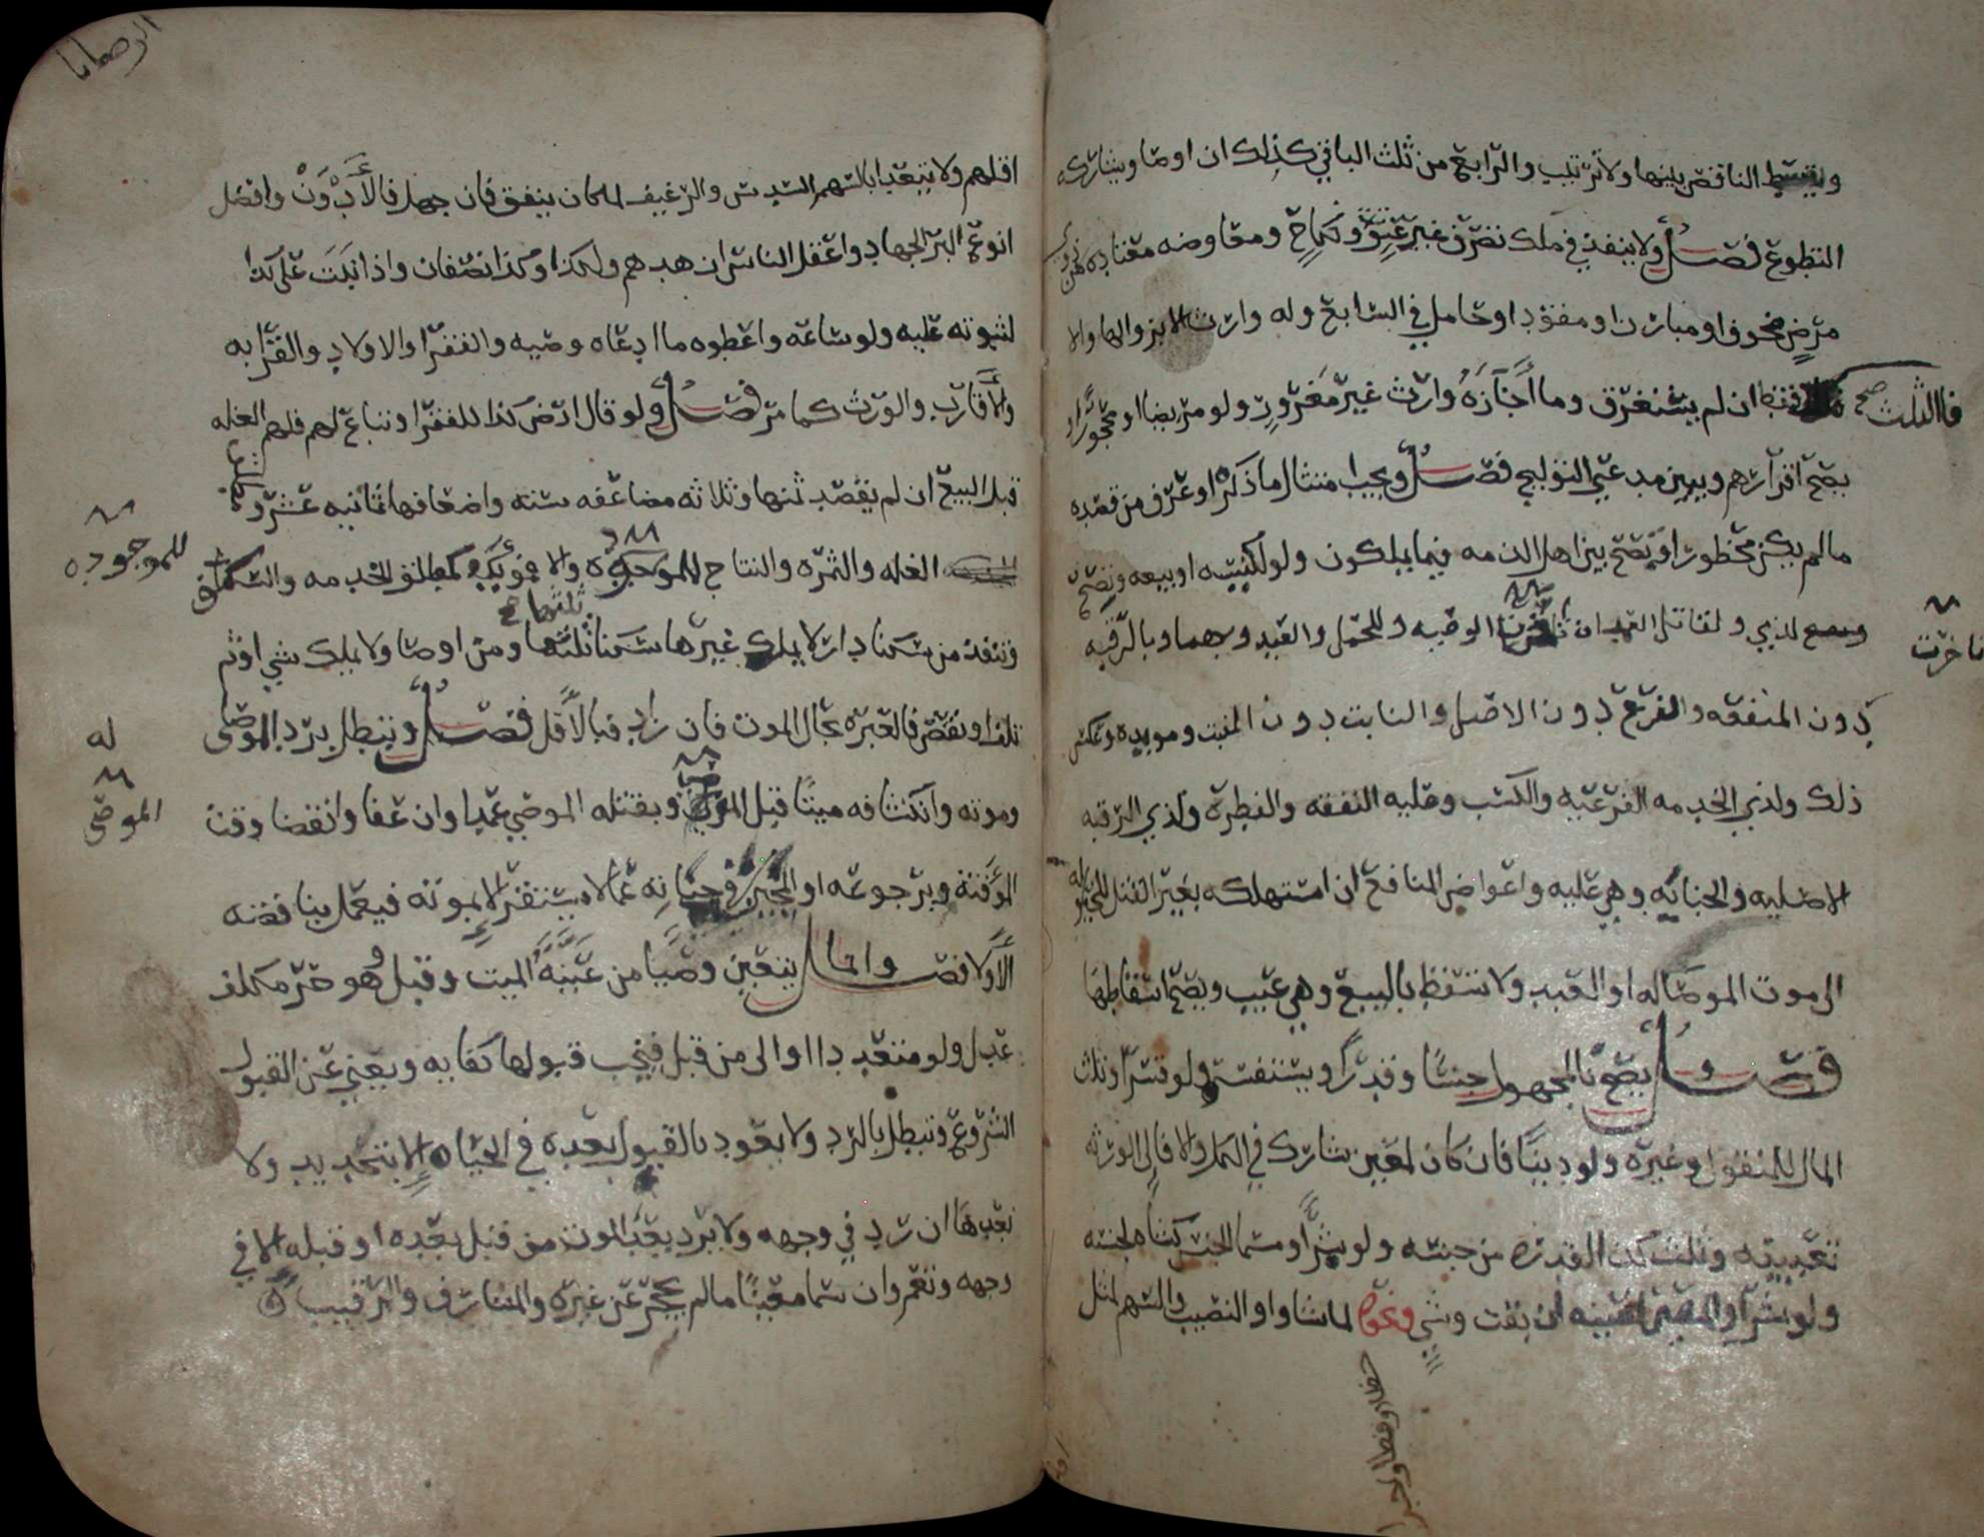 ويقسط الناقص بينها ولا ترتيب والرابع من ثلث الباقي كذلك ان اوصا ويشاركه
التطوع فصل ولا ينفذ في ملك تصرف غير عتق ونكاح ومعاوضه معتاده من ذي
مرض مخوف او مبارز او مقود او حامل في السابع وله وارث الا بزوالها والا
فالثلث صح
فقط ان لم يستغرق وما أجازه وارث غير مغرور ولو مريضا او محجورا
يصح اقرارهم ويبين مدعي التوليج فصل ويجب امتثال ما ذكره او عرف من قصده
مالم يكن محظورا وتصح بين اهل الذمه فيما يملكون ولو لكنيسه او بيعه وتصح
لذمي ولقاتل العمد ان تأخرت الوصيه وللحمل والعبد وبهما وبالرقبه
تاخرت
دون المنفعه والفرع دون الاصل والنابت دون المنبت ومؤبده وعكس
ذلك ولذي الخدمه الفرعيه والكسب وعليه النفقه والفطره ولذي الرقبه
الاصليه والجنايه وهي عليه واعواض المنافع ان استهلكه بغير القتل للحيلوله
الى موت الموصا له او العبد ولا تسقط بالبيع وهي عيب ويصح اسقاطها
فصل وتصح بالمجهول جنسا وقدرا ويستفسر ولو قسرا وثلث
المال للمنقول وغيره ولو دينا فان كان لمعين شارك في الكل والا فالى الورثه
تعيينه وثلث كذا لقدره من جنسه ولو شرا ومسما الجنس كشاه لجنسه
ولو شرا والمعين لعينه ان بقت وشي ونحوه لما شاوا والنصيب والسهم لمثل
الوصايا
اقلهم ولا يتعدا بالسهم السدس والرغيف لما كان ينفق فان جهل فالأدون وافضل
انوع البر الجهاد واعقل الناس ازهدهم ولكذا وكذا نصفان واذا ثبت على كذا
لثبوته عليه ولو ساعه واعطوه ما ادعاه وصيه والفقرا والاولاد والقرابه
والأقارب والورث كما مر فصل ولو قال ارض كذا للفقرا وتباع لهم فلهم الغله
قبل البيع ان لم يقصد ثمنها وثلاثه مضاعفه سته واضعافها ثمانيه عشر و
الغله والثمره والنتاج للموجوده والا فمؤبده كمطلق الخدمه والسكنى
للموجوده
وتنفذ من سكنا دار لا يملك غيرها سكنا ثلثها ومن اوصا ولا يملك شي او ثم
تلف او نقص فالعبره بحال الموت فان زاد فبالأقل فصل وتبطل برد الموصى
له
وموته وانكشافه ميتا قبل الموصي وبقتله الموصي عمدا وان عفا وانقضا وقت
الموصى
المؤقتة وبرجوعه او المجيز في حياته عما لا يستقر الا بموته فيعمل بناقضه
الأولا فصل وانما يتعين وصيا من عينه الميت وقبل وهو حر مكلف
عدل ولو متعددا او الى من قبل فيجب قبولها كفايه ويغني عن القبول
الشروع وتبطل بالرد ولا يعود بالقبول بعده في الحياه الا بتجديد ولا
بعدها ان رد في وجهه ولا برد بعد الموت من قبل بعده او قبله الا في
وجهه وتعم وان سما معينا مالم يحجر عن غيره والمشارف والرقيب